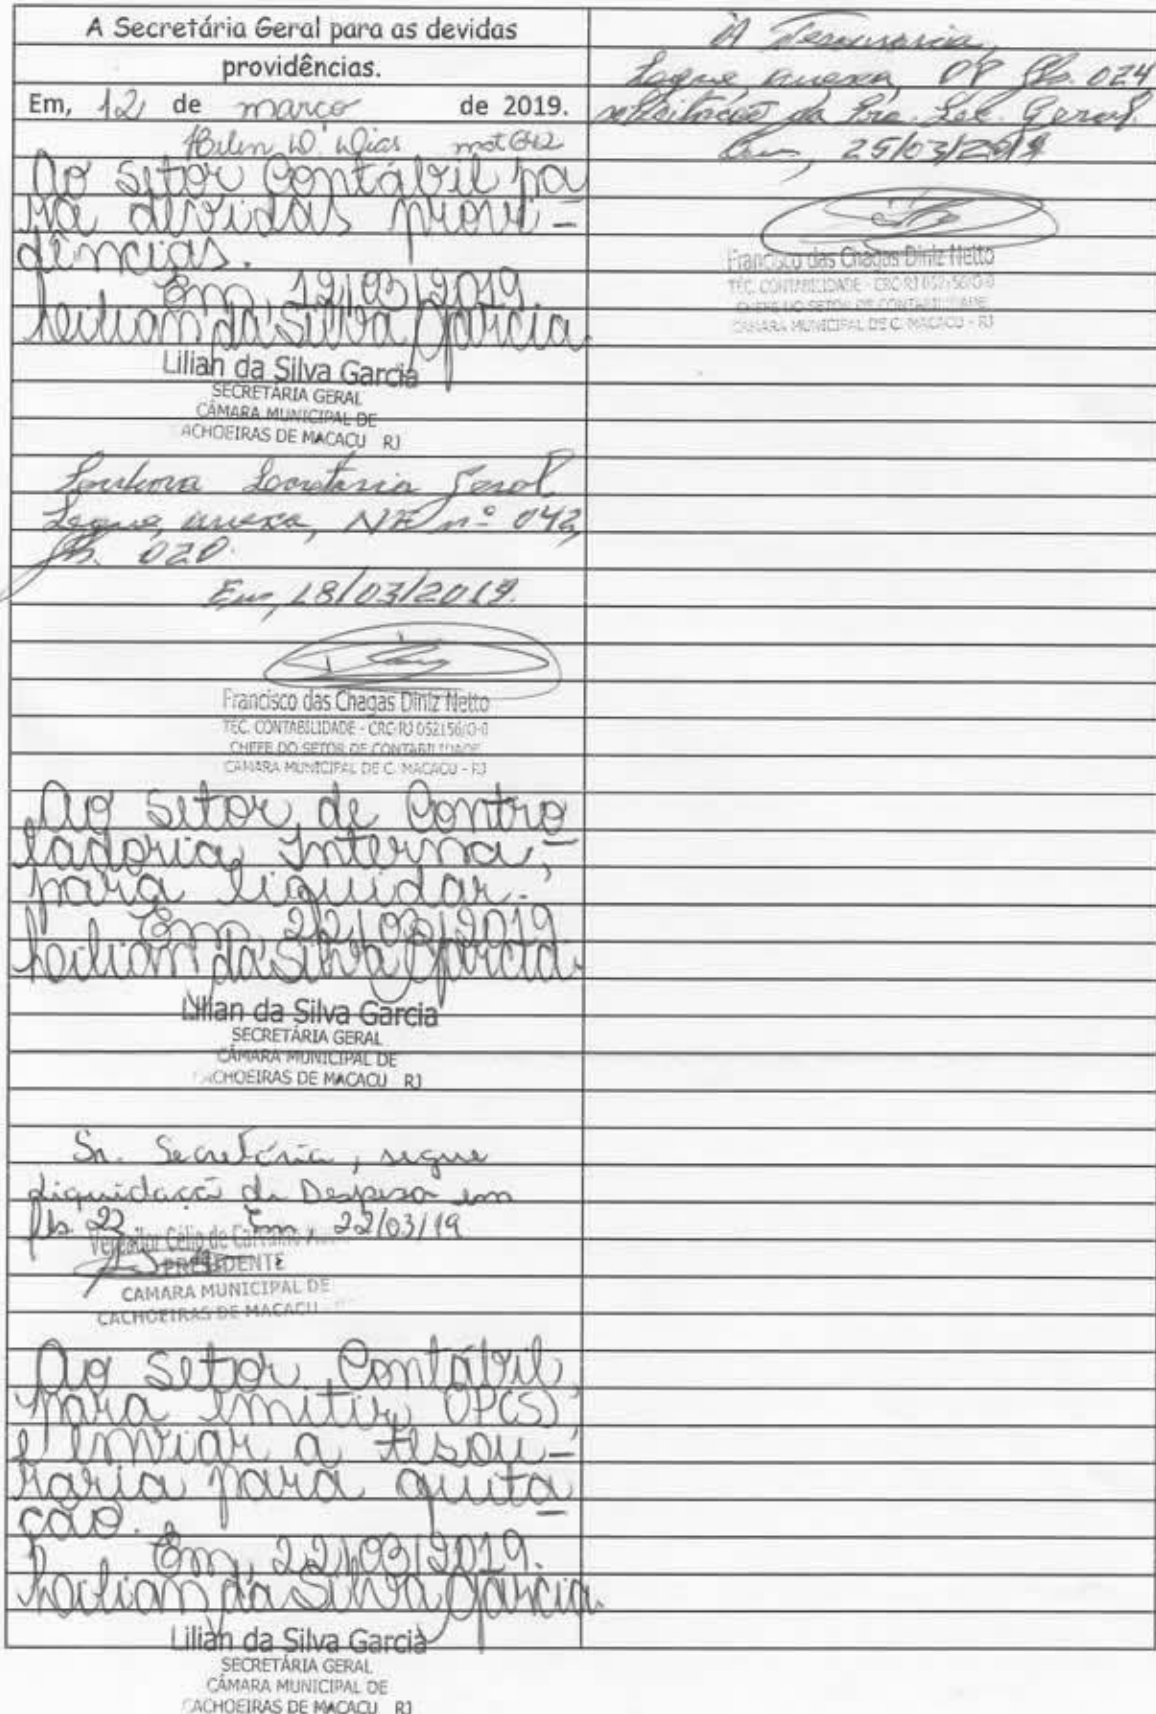 A Secretária Geral para as devidas
providências.
Em, 12 de março de 2019.
W. Dias mat 642
Ao Setor Contábil pa
ra devidas provi-
dências.
Em, 12/03/2019.
Lilian da Silva Garcia
Lilian da Silva Garcia
SECRETÁRIA GERAL
CÂMARA MUNICIPAL DE
ACHOEIRAS DE MACACU RJ
Senhora Secretaria Geral
Segue, anexa, NE nº 042,
fls. 020.
Em, 18/03/2019.
Francisco das Chagas Diniz Netto
TÉC. CONTABILIDADE - CRC-RJ 052156/O-0
CHEFE DO SETOR DE CONTABILIDADE
CAMARA MUNICIPAL DE C. MACACU - RJ
Ao Setor de Contro
ladoria Interna,
para liquidar.
Em, 22/03/2019
Lilian da Silva Garcia
Lilian da Silva Garcia
SECRETÁRIA GERAL
CÂMARA MUNICIPAL DE
CACHOEIRAS DE MACACU RJ
Sr. Secretária, segue
Liquidação da Despesa em
fls 22 Em, 22/03/19
Vereador Célio de Carvalho
PRESIDENTE
CAMARA MUNICIPAL DE
CACHOEIRAS DE MACACU
Ao Setor Contábil,
para emitir OP(S)
e enviar a tesou-
raria para quita
ção.
Em, 22/03/2019.
Lilian da Silva Garcia
Lilian da Silva Garcia
SECRETÁRIA GERAL
CÂMARA MUNICIPAL DE
CACHOEIRAS DE MACACU RJ
À Tesouraria,
Segue anexa, OP fls. 024
solicitação da Sra. Sec. Geral.
Em, 25/03/2019
Francisco das Chagas Diniz Netto
TÉC. CONTABILIDADE - CRC-RJ 052156/O-0
CHEFE DO SETOR DE CONTABILIDADE
CAMARA MUNICIPAL DE C. MACACU - RJ